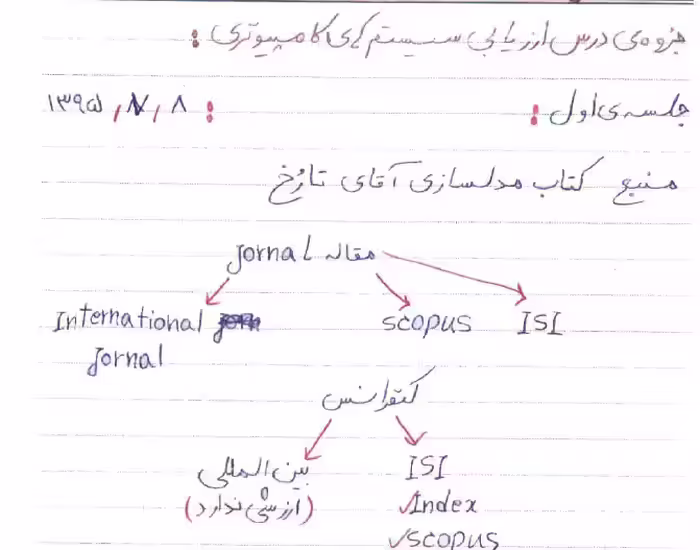 جزوه‌ی درس ارزیابی سیستم‌های کامپیوتری :
جلسه‌ی اول : ۱۳۹۵ , ۷ , ۸ :
منبع کتاب مدلسازی آقای تارُخ
مقاله Jornal
International Jornal
scopus
ISI
کنفرانس
بین المللی
(ارزشی ندارد)
ISI
✓Index
✓scopus